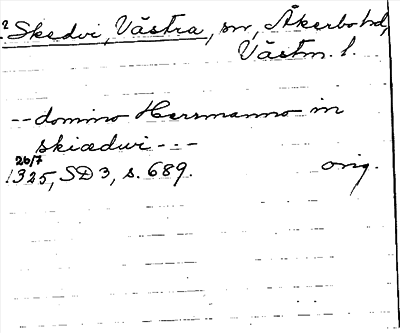 ? Skedvi, Västra, sn, Åkerbo hd,
Västm. l.
-- domino Hersmanno in
skiædwi - - -
26/7
1325, SD 3, s. 689. orig.